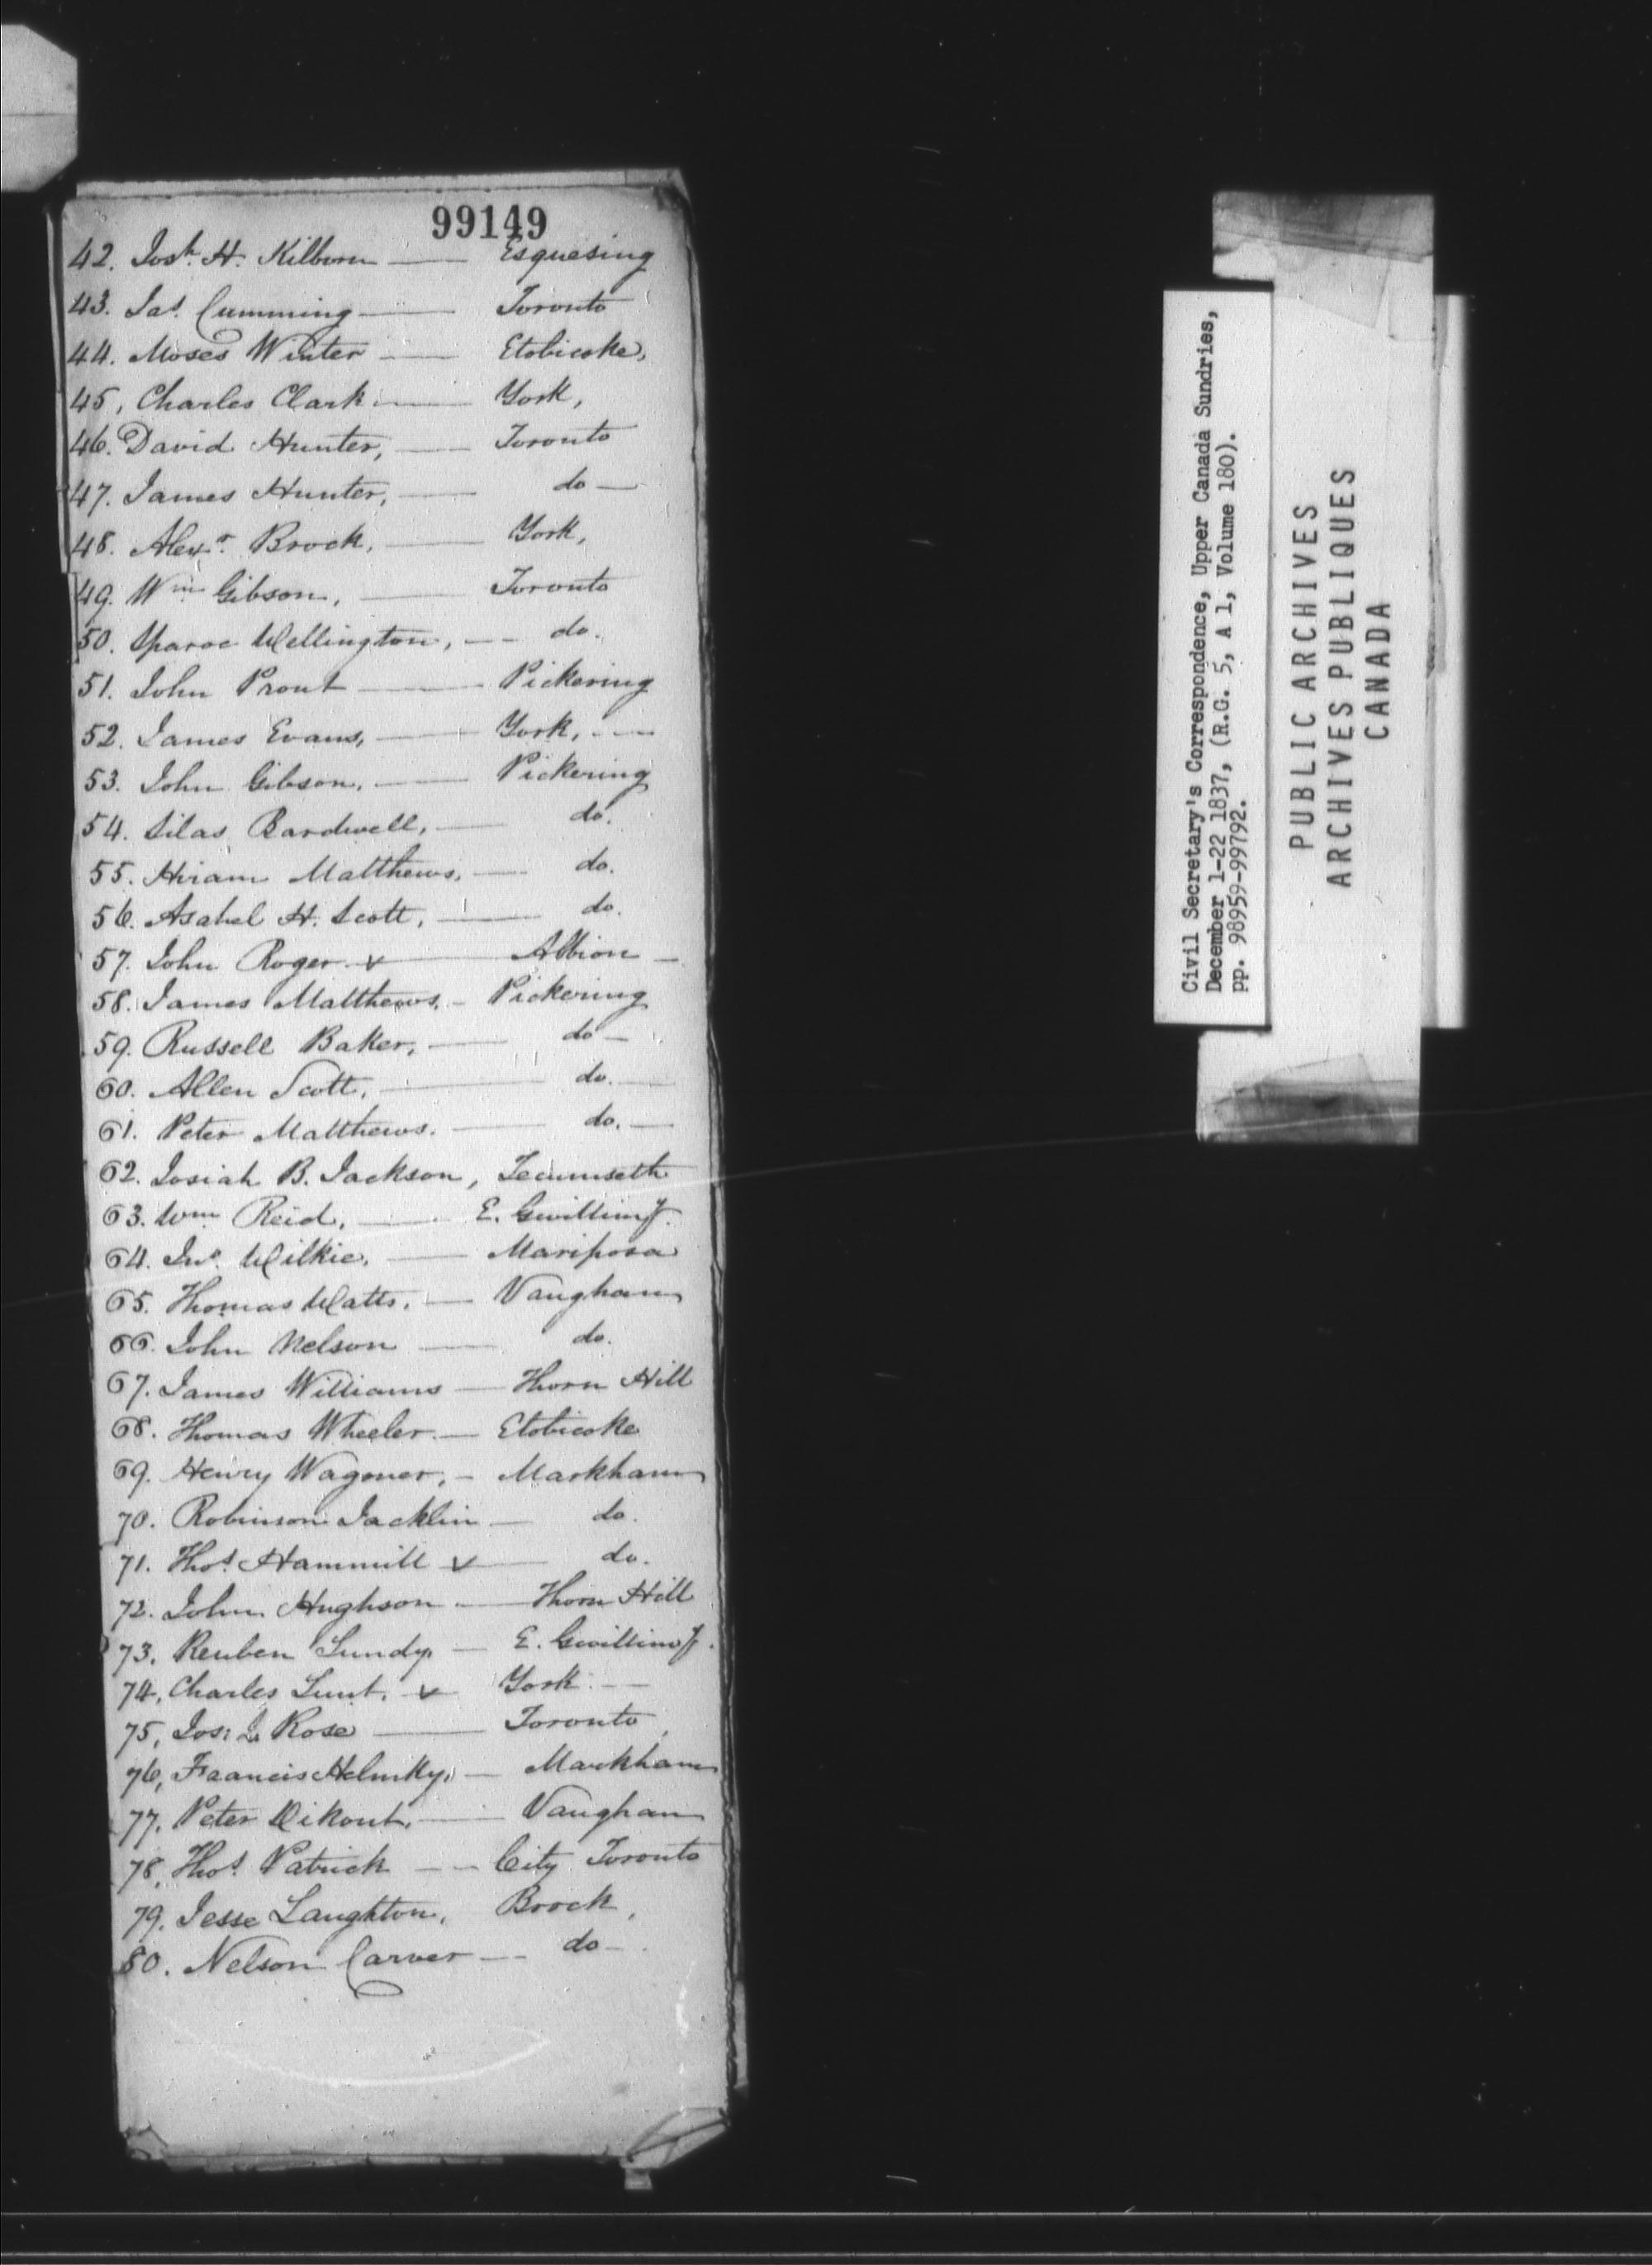 99149
42. Josh. H. Kilborn — Esquesing
43. Jas. Cumming — Toronto
44. Moses Winter — Etobicoke,
45, Charles Clark — York,
46. David Hunter, — Toronto
47. James Hunter, — do —
48. Alexr. Brock, — York,
49. Wm Gibson, — Toronto
50. Wellington, — do.
51. John Prout — Pickering
52. James Evans, — York, —
53. John Gibson, — Pickering
54. Silas Bardwell, — do.
55. Hiram Matthews, — do.
56. Asahel H. Scott, — do.
57. John Roger v — Albion —
58. James Matthews, — Pickering
59. Russell Baker, — do —
60. Allen Scott, — do. —
61. Peter Matthews. — do. —
62. Josiah B. Jackson, Tecumseth
63. Wm Reid, — E. Gwillimy.
64. Jno. Wilkie, — Mariposa
65. Thomas Watts, — Vaughan
66. John Nelson — do.
67. James Williams — Thorn Hill
68. Thomas Wheeler — Etobicoke
69. Henry Wagoner, — Markham
70. Robinson Jacklin — do.
71. Thos. Hammill v — do.
72. John Hughson — Thorn Hill
73, Reuben Lundy — E. Gwillimy.
74, Charles Lunt, v York —
75, Jos: Rose — Toronto,
76, Francis — Markham
77, Peter — Vaughan
78, Thos. Patrick — City Toronto
79. Jesse Laughton, Brock,
80. Nelson Carver — do —
Civil Secretary's Correspondence, Upper Canada Sundries,
December 1-22 1837, (R.G. 5, A 1, Volume 180).
pp. 98959-99792.
PUBLIC ARCHIVES
ARCHIVES PUBLIQUES
CANADA